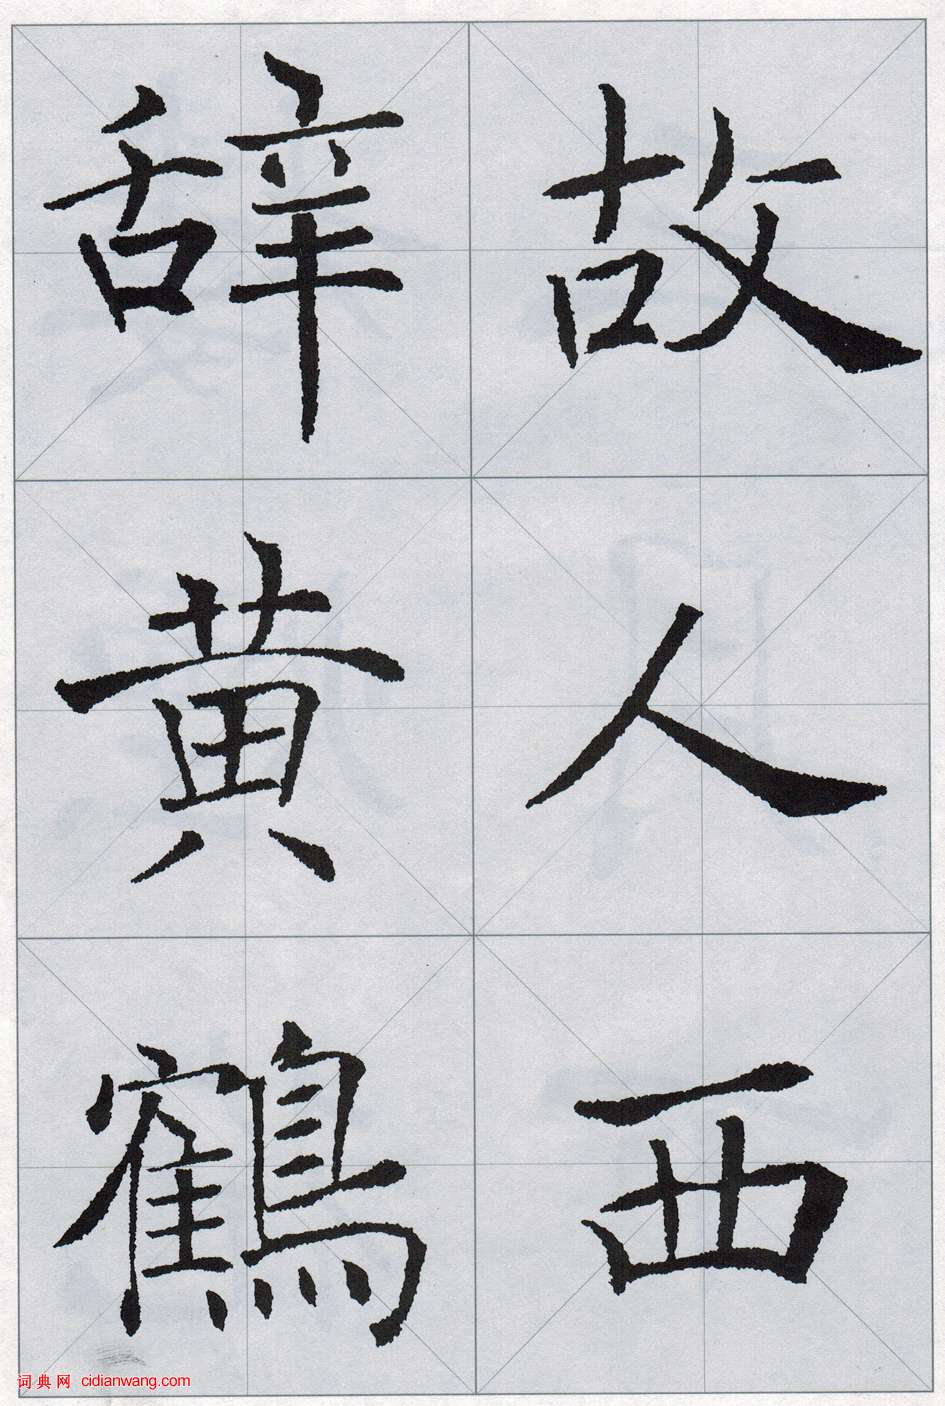 故人西
辞黄鹤
词典网 cidianwang.com